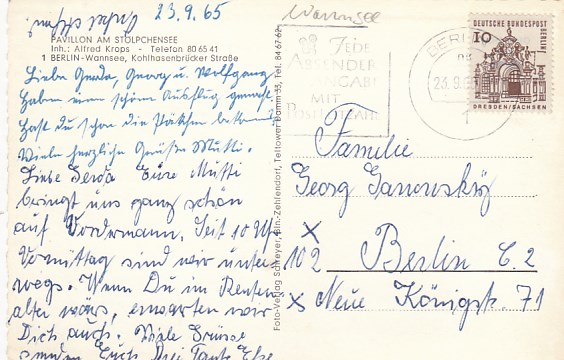 23.9.65
Wannsee
PAVILLON AM STOLPCHENSEE
Inh.: Alfred Krops - Telefon 80 65 41
1 BERLIN-Wannsee, Kohlhasenbrücker Straße
Liebe Gerda, Georg u Wolfgang
haben einen schönen Ausflug gemacht.
hast du schon die Päckchen bekommen
Viele herzliche Grüße Mutti.
Liebe Gerda Eure Mutti
bringt uns ganz schön
auf Vordermann. Seit 10 Uhr
Vormittag sind wir unter-
wegs. Wenn Du im Renten
alter wärs, erwarten wir
Dich auch. Viele Grüsse
senden Euch Drei Tante Else
Foto-Verlag Schreyer, Bln.-Zehlendorf, Teltower Damm 35, Tel. 84 67 62
JEDE
ABSENDER
ANGABE
MIT
POSTLEITZAHL
BERLIN
23.9.65
1
DEUTSCHE BUNDESPOST
BERLIN
10
DRESDEN/SACHSEN
Familie
Georg Janowsky
X
102 Berlin C. 2
X Neue Königstr. 71